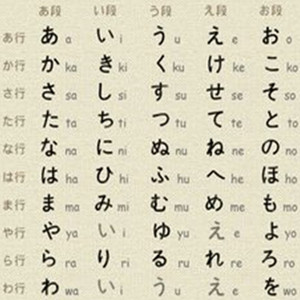 あ段 い段 う段 え段 お段
あ行 あ a い i う u え e お o
か行 か ka き ki く ku け ke こ ko
さ行 さ sa し si す su せ se そ so
た行 た ta ち ti つ tu て te と to
な行 な na に ni ぬ nu ね ne の no
は行 は ha ひ hi ふ hu へ he ほ ho
ま行 ま ma み mi む mu め me も mo
や行 や ya い i ゆ yu え e よ yo
ら行 ら ra り ri る ru れ re ろ ro
わ行 わ wa い i う u え e を wo